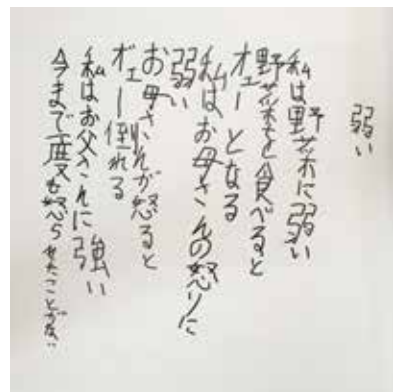 弱い
私は野菜に弱い
野菜を食べると
オェーとなる
私はお母さんの怒りに
弱い
お母さんが怒ると
オェー倒れる
私はお父さんに強い
今まで一度も怒らせたことがない